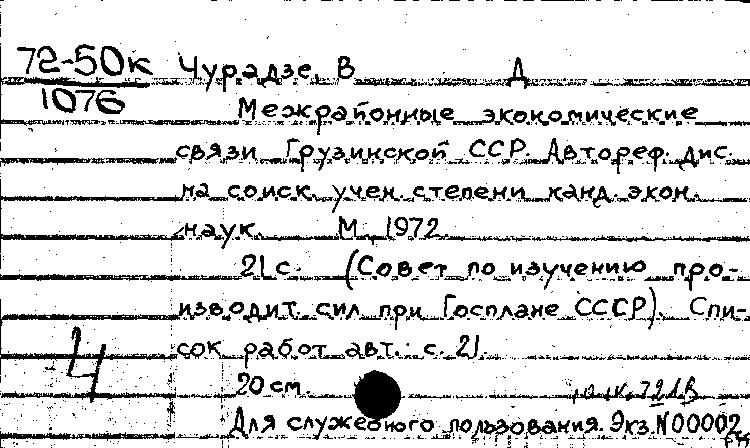 72-50к Чурадзе, В Д
1076
Межрайонные экономические
связи Грузинской ССР. Автореф. дис.
на соиск. учен. степени канд. экон.
наук. М., 1972.
21 с. (Совет по изучению про-
изводит. сил при Госплане СССР). Спи-
сок работ авт.: с. 21.
Ч
20 см.
Для служебного пользования. Экз. N 00002